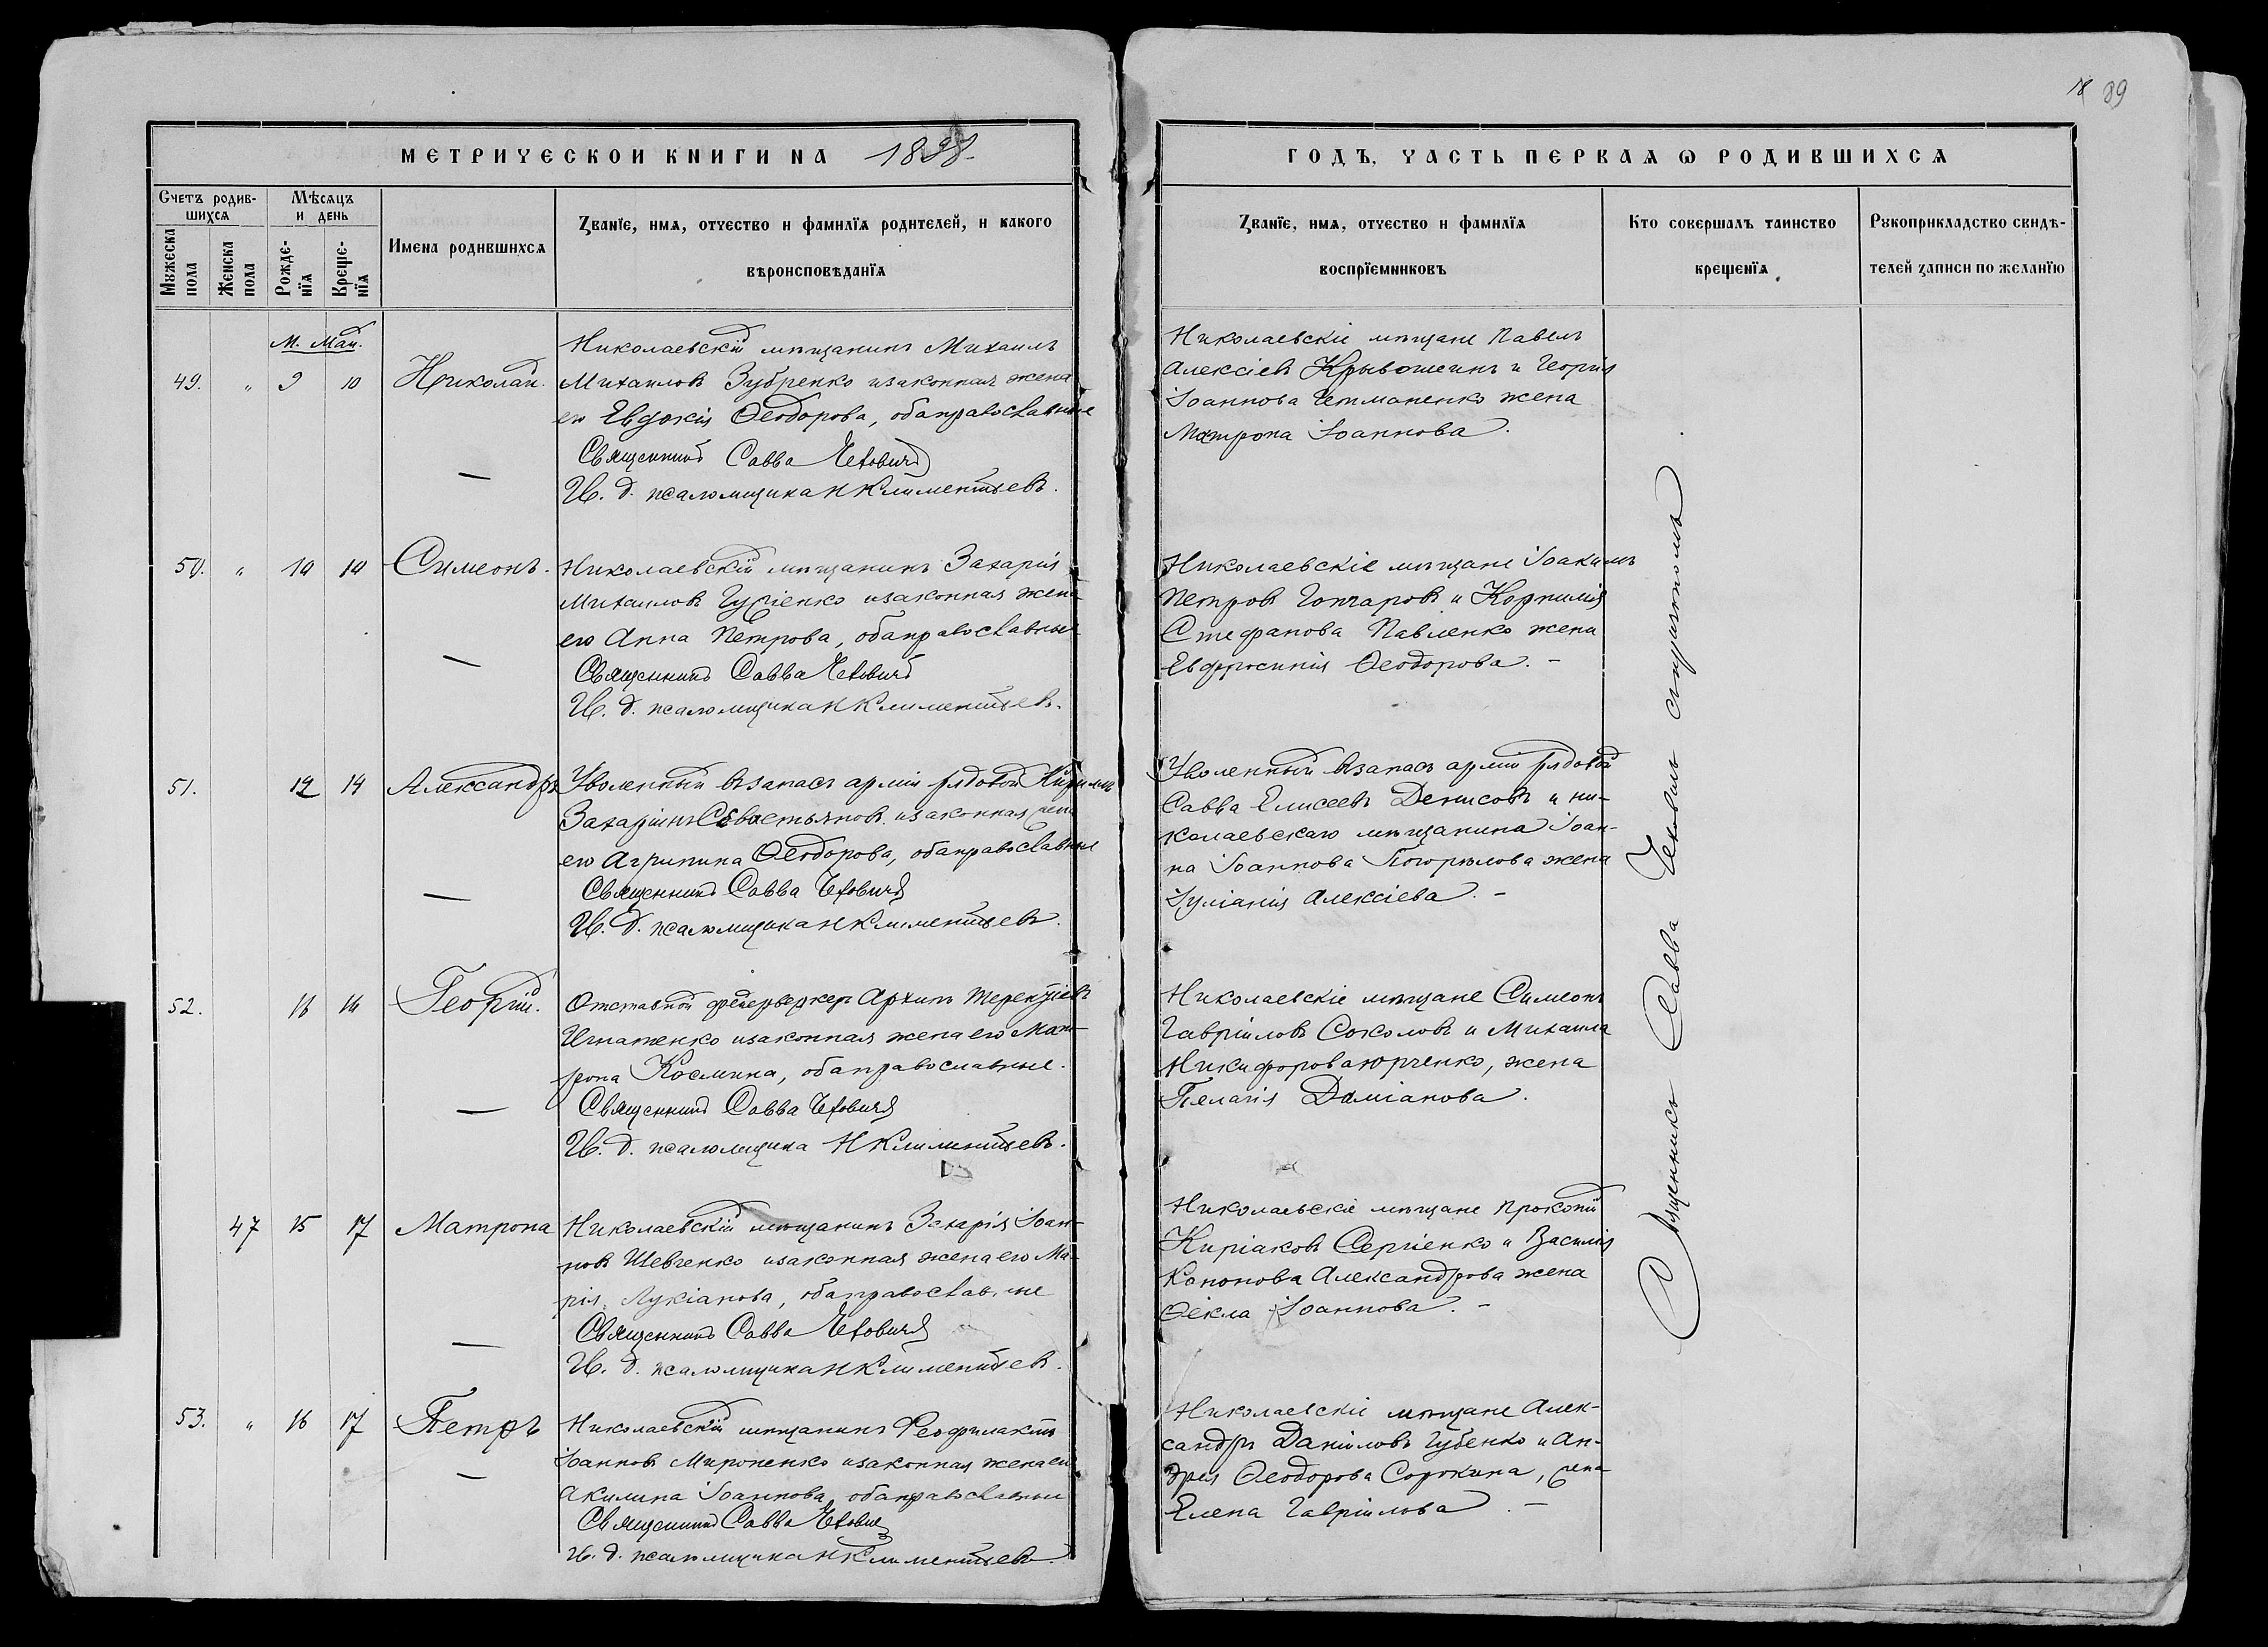 18 89
МЕТРИЧЕСКОЙ КНИГИ НА 1898
ГОДЪ, ЧАСТЬ ПЕРВАЯ Ѡ РОДИВШИХСЯ
Счетъ родив-
шихся
Мѣсяцъ
и день
Мужеска
пола
Женска
пола
Рожде-
нїя
Креще-
нїя
Имена родившихся
Званїе, имя, отчество и фамилїя родителей, и какого
вѣроисповѣданїя
Званїе, имя, отчество и фамилїя
воспрїемниковъ
Кто совершалъ таинство
крещенїя
Рукоприкладство свидѣ-
телей записи по желанїю
М. Май.
49. " 9 10 Николай.
Николаевскій мѣщанинъ Михаилъ
Михаиловъ Зубренко и законная жена
его Евдокія Ѳеодорова, оба православные
Священникъ Савва Чехович
И. д. псаломщика Н Климентьевъ.
Николаевскіе мѣщане Павелъ
Алексіевъ Крывошеинъ и Георгія
Іоаннова Четманенко жена
Матрона Іоаннова.
50. " 10 10 Симеонъ.
Николаевскій мѣщанинъ Захарія
Михаиловъ Гусіенко и законная жена
его Анна Петрова, оба православные
Священникъ Савва Чехович
И. д. псаломщика Н Климентьевъ.
Николаевскіе мѣщане Іоакимъ
Петровъ Гончаровъ и Корнилія
Стефанова Павленко жена
Евфросинія Ѳеодорова. –
51. 12 14 Александръ
Уволенный въ запасъ арміи рядовой Кирилъ
Захаріинъ Севастьяновъ и законная жена
его Агрипина Ѳеодорова, оба православные
Священникъ Савва Чехович
И. д. псаломщика Н Климентьевъ.
Уволенный въ запасъ арміи рядовой
Савва Елисеевъ Денисовъ и ни-
колаевскаго мѣщанина Іоан-
на Іоаннова Погорѣлова жена
Іуліанія Алексіева. –
52. 16 Георгій.
Отставной фейерверкеръ Архипъ Терентіевъ
Игнатенко и законная жена его Мат-
рона Космина, оба православные.
Священникъ Савва Чехович
И. д. псаломщика Н Климентьевъ.
Николаевскіе мѣщане Симеонъ
Гавріиловъ Соколовъ и Михаила
Никифорова Юрченко, жена
Пелагія Даміанова.
47 15 17 Матрона
Николаевскій мѣщанинъ Захарія Іоан-
новъ Шевченко и законная жена его Ма-
рія Лукіанова, оба православные
Священникъ Савва Чехович
И. д. псаломщика Н Климентьевъ.
Николаевскіе мѣщане Прокопій
Киріаковъ Сергіенко и Василія
Кононова Александрова жена
Ѳекла Іоаннова. –
53. " 16 17 Петръ
Николаевскій мѣщанинъ Феофилактъ
Іоанновъ Мироненко и законная жена его
Акилина Іоаннова, оба православные
Священникъ Савва Чехович
И. д. псаломщика Н Климентьевъ.
Николаевскіе мѣщане Алек-
сандръ Даніиловъ Губенко и Ан-
дрея Ѳеодорова Сорокина, жена
Елена Гавріилова. –
Священникъ Савва Чеховичъ